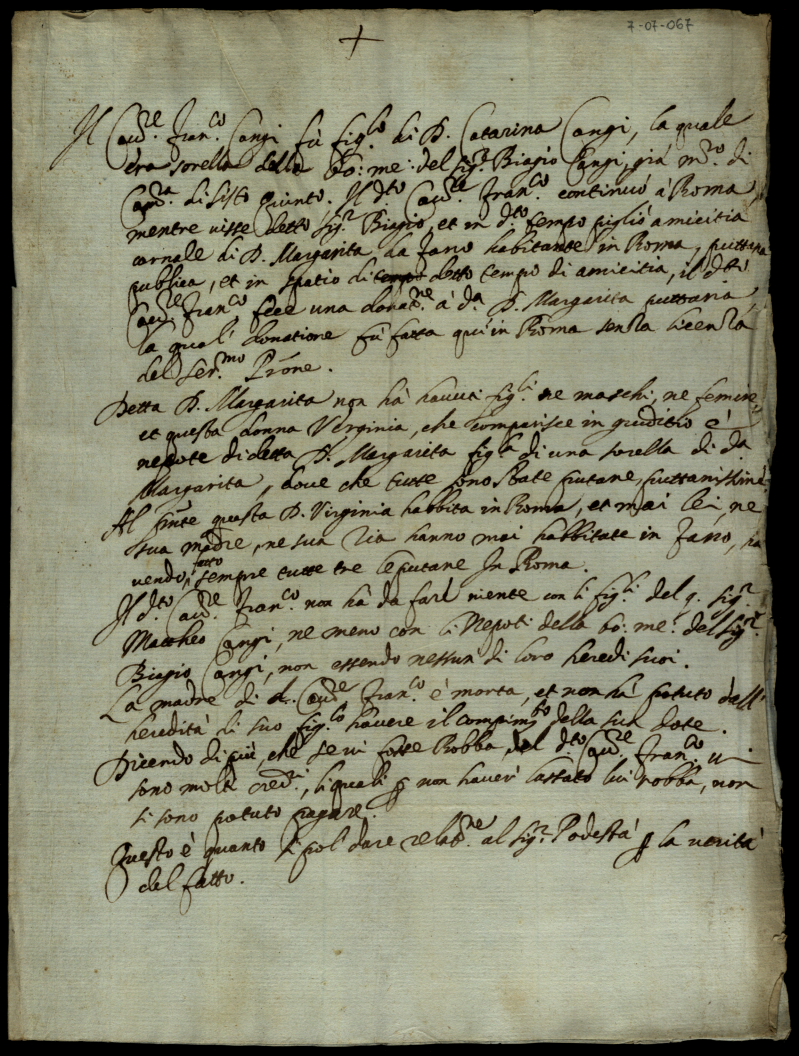 7-07-067
+
Il Cau.re Fran.co Cangi fù fig.lo di D. Catarina Cangi, la quale
era sorella della bo: me: del Sig.r Biagio Cangi, già m.ro di
Cam.a di Sisto Quinto. Il d.to Cau.re Fran.co continuò à Roma,
mentre uisse detto Sig.r Biagio, et in d.to tempo pigliò amicitia
carnale di D. Margarita da Fano habitante in Roma, puttana
publica, et in spatio di detto tempo di amicitia, il d.to
Cau.re Fran.co fece una donat.ne à d.a D. Margarita puttana,
la qual' donatione fù fatta quì in Roma senza licenza
del Ser.mo Prõne.
Detta D. Margarita non hà hauuti fig.li ne maschi, ne femine,
et questa donna Verginia, che comparisce in giuditio è
nepote di detta D. Margarita fig.la di una sorella di d.a
Margarita, doue che tutte sono state putane, puttanissime.
Al pñte questa D. Virginia habbita in Roma, et mai lei, ne
sua madre, ne sua Zia hanno mai habbitate in Fano, ha
uendo fatto sempre tutte tre le putane In Roma.
Il d.to Cau.re Fran.co non hà da fare niente con li fig.li del q. Sig.r
Mattheo Cangi, ne meno con li Nepoti della bo: me: del Sig.r
Biagio Cangi, non essendo nessun di loro heredi suoi.
La madre di d. Cau.re Fran.co è morta, et non hà potuto dall'
heredità di suo fig.lo hauere il compim.to della sua dote.
Dicendo di più, che se ui fosse Robba del d.to Cau.re Fran.co ui
sono molti cred.ri, li quali p non hauer' lassato lui robba, non
si sono potuto pagare.
Questo è quanto si pol' dare relat.ne al Sig.r Podestà p la uerità
del fatto.